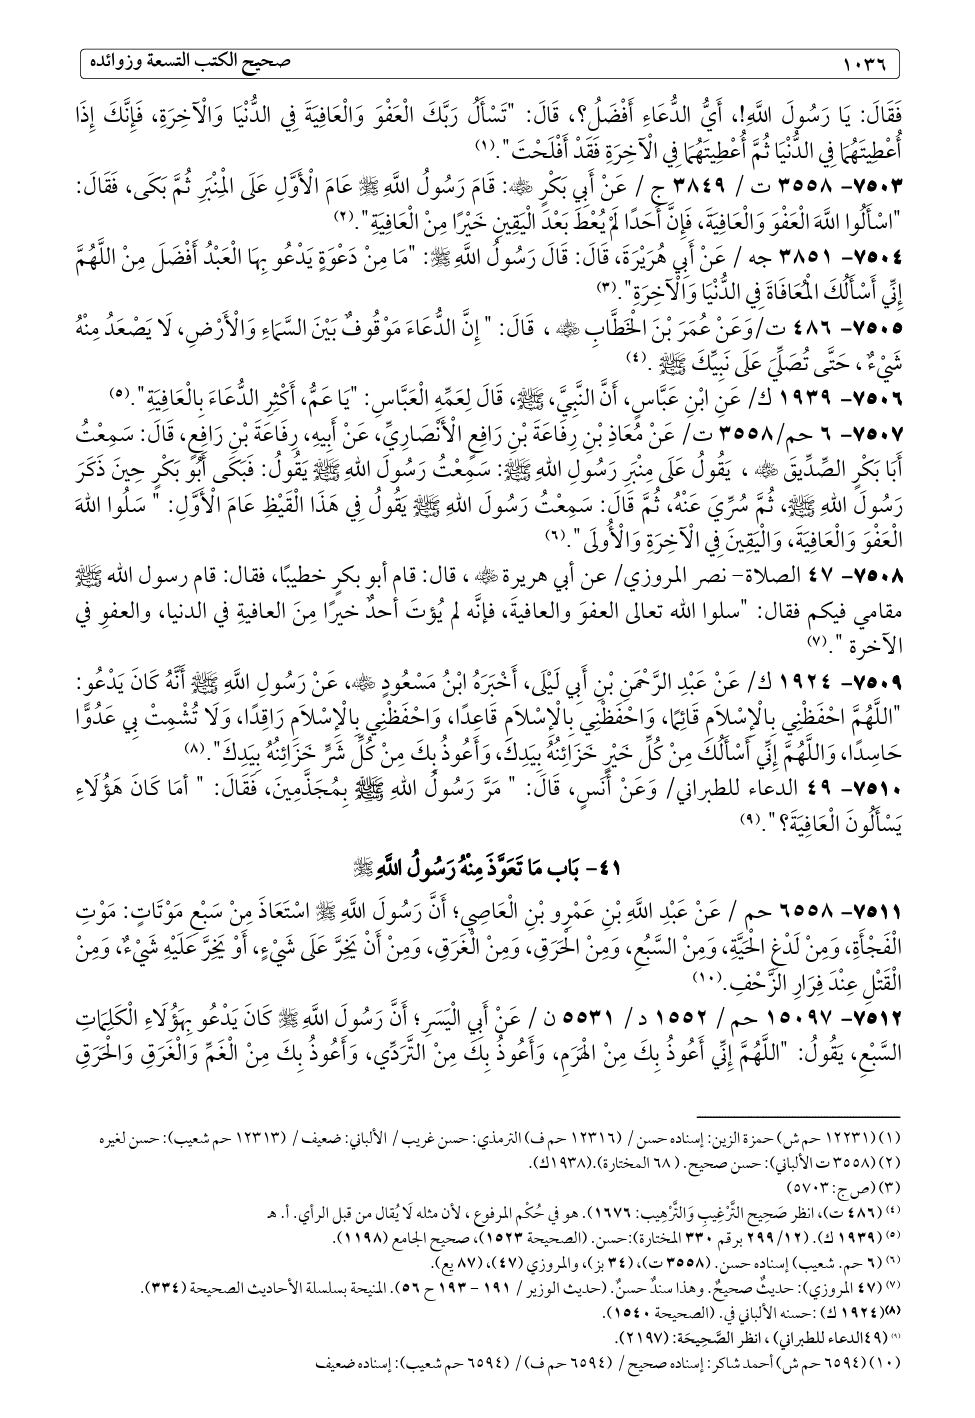 ١٠٣٦ صحيح الكتب التسعة وزوائده
فَقَالَ: يَا رَسُولَ اللَّهِ!، أَيُّ الدُّعَاءِ أَفْضَلُ؟، قَالَ: "تَسْأَلُ رَبَّكَ الْعَفْوَ وَالْعَافِيَةَ فِي الدُّنْيَا وَالْآخِرَةِ، فَإِنَّكَ إِذَا
أُعْطِيتَهُمَا فِي الدُّنْيَا ثُمَّ أُعْطِيتَهُمَا فِي الْآخِرَةِ فَقَدْ أَفْلَحْتَ".(١)
٧٥٠٣- ٣٥٥٨ ت / ٣٨٤٩ ج / عَنْ أَبِي بَكْرٍ ﵁: قَامَ رَسُولُ اللَّهِ ﷺ عَامَ الْأَوَّلِ عَلَى الْمِنْبَرِ ثُمَّ بَكَى، فَقَالَ:
"اسْأَلُوا اللَّهَ الْعَفْوَ وَالْعَافِيَةَ، فَإِنَّ أَحَدًا لَمْ يُعْطَ بَعْدَ الْيَقِينِ خَيْرًا مِنْ الْعَافِيَةِ".(٢)
٧٥٠٤- ٣٨٥١ جه / عَنْ أَبِي هُرَيْرَةَ، قَالَ: قَالَ رَسُولُ اللَّهِ ﷺ: "مَا مِنْ دَعْوَةٍ يَدْعُو بِهَا الْعَبْدُ أَفْضَلَ مِنْ اللَّهُمَّ
إِنِّي أَسْأَلُكَ الْمُعَافَاةَ فِي الدُّنْيَا وَالْآخِرَةِ".(٣)
٧٥٠٥- ٤٨٦ ت/وَعَنْ عُمَرَ بْنَ الْخَطَّابِ ﵁ ، قَالَ: " إِنَّ الدُّعَاءَ مَوْقُوفٌ بَيْنَ السَّمَاءِ وَالْأَرْضِ، لَا يَصْعَدُ مِنْهُ
شَيْءٌ ، حَتَّى تُصَلِّيَ عَلَى نَبِيِّكَ ﷺ .(٤)
٧٥٠٦- ١٩٣٩ ك/ عَنِ ابْنِ عَبَّاسٍ، أَنَّ النَّبِيَّ، ﷺ، قَالَ لِعَمِّهِ الْعَبَّاسِ: "يَا عَمُّ، أَكْثِرِ الدُّعَاءَ بِالْعَافِيَةِ".(٥)
٧٥٠٧- ٦ حم/٣٥٥٨ ت/ عَنْ مُعَاذِ بْنِ رِفَاعَةَ بْنِ رَافِعٍ الْأَنْصَارِيِّ، عَنْ أَبِيهِ، رِفَاعَةَ بْنِ رَافِعٍ، قَالَ: سَمِعْتُ
أَبَا بَكْرٍ الصِّدِّيقَ ﵁ ، يَقُولُ عَلَى مِنْبَرِ رَسُولِ اللهِ ﷺ: سَمِعْتُ رَسُولَ اللهِ ﷺ يَقُولُ: فَبَكَى أَبُو بَكْرٍ حِينَ ذَكَرَ
رَسُولَ اللهِ ﷺ، ثُمَّ سُرِّيَ عَنْهُ، ثُمَّ قَالَ: سَمِعْتُ رَسُولَ اللهِ ﷺ يَقُولُ فِي هَذَا الْقَيْظِ عَامَ الْأَوَّلِ: " سَلُوا اللهَ
الْعَفْوَ وَالْعَافِيَةَ، وَالْيَقِينَ فِي الْآخِرَةِ وَالْأُولَى ".(٦)
٧٥٠٨- ٤٧ الصلاة- نصر المروزي/ عن أبي هريرة ﵁ ، قال: قام أبو بكرٍ خطيبًا، فقال: قام رسول الله ﷺ
مقامي فيكم فقال: "سلوا الله تعالى العفوَ والعافيةَ، فإنَّه لم يُؤتَ أحدٌ خيرًا مِنَ العافيةِ في الدنيا، والعفوِ في
الآخرة ".(٧)
٧٥٠٩- ١٩٢٤ ك/ عَنْ عَبْدِ الرَّحْمَنِ بْنِ أَبِي لَيْلَى، أَخْبَرَهُ ابْنُ مَسْعُودٍ ﵁، عَنْ رَسُولِ اللَّهِ ﷺ أَنَّهُ كَانَ يَدْعُو:
"اللَّهُمَّ احْفَظْنِي بِالْإِسْلَامِ قَائِمًا، وَاحْفَظْنِي بِالْإِسْلَامِ قَاعِدًا، وَاحْفَظْنِي بِالْإِسْلَامِ رَاقِدًا، وَلَا تُشْمِتْ بِي عَدُوًّا
حَاسِدًا، وَاللَّهُمَّ إِنِّي أَسْأَلُكَ مِنْ كُلِّ خَيْرٍ خَزَائِنُهُ بِيَدِكَ، وَأَعُوذُ بِكَ مِنْ كُلِّ شَرٍّ خَزَائِنُهُ بِيَدِكَ".(٨)
٧٥١٠- ٤٩ الدعاء للطبراني/ وَعَنْ أَنَسٍ، قَالَ: " مَرَّ رَسُولُ اللهِ ﷺ بِمُجَذَّمِينَ، فَقَالَ: " أمَا كَانَ هَؤُلَاءِ
يَسْأَلُونَ الْعَافِيَةَ؟ ".(٩)
٤١- بَاب مَا تَعَوَّذَ مِنْهُ رَسُولُ اللَّهِ ﷺ
٧٥١١- ٦٥٥٨ حم / عَنْ عَبْدِ اللَّهِ بْنِ عَمْرِو بْنِ الْعَاصِي؛ أَنَّ رَسُولَ اللَّهِ ﷺ اسْتَعَاذَ مِنْ سَبْعِ مَوْتَاتٍ: مَوْتِ
الْفَجْأَةِ، وَمِنْ لَدْغِ الْحَيَّةِ، وَمِنْ السَّبُعِ، وَمِنْ الْحَرَقِ، وَمِنْ الْغَرَقِ، وَمِنْ أَنْ يَخِرَّ عَلَى شَيْءٍ، أَوْ يَخِرَّ عَلَيْهِ شَيْءٌ، وَمِنْ
الْقَتْلِ عِنْدَ فِرَارِ الزَّحْفِ.(١٠)
٧٥١٢- ١٥٠٩٧ حم / ١٥٥٢ د/ ٥٥٣١ ن / عَنْ أَبِي الْيَسَرِ؛ أَنَّ رَسُولَ اللَّهِ ﷺ كَانَ يَدْعُو بِهَؤُلَاءِ الْكَلِمَاتِ
السَّبْعِ، يَقُولُ: "اللَّهُمَّ إِنِّي أَعُوذُ بِكَ مِنْ الْهَرَمِ، وَأَعُوذُ بِكَ مِنْ التَّرَدِّي، وَأَعُوذُ بِكَ مِنْ الْغَمِّ وَالْغَرَقِ وَالْحَرَقِ
(١) (١٢٢٣١ حم ش) حمزة الزين: إسناده حسن / (١٢٣١٦ حم ف) الترمذي: حسن غريب / الألباني: ضعيف / (١٢٣١٣ حم شعيب): حسن لغيره
(٢) (٣٥٥٨ ت الألباني): حسن صحيح. (٦٨ المختارة).(١٩٣٨ك).
(٣) (ص ج: ٥٧٠٣)
(٤) (٤٨٦ ت)، انظر صَحِيح التَّرْغِيبِ وَالتَّرْهِيب: ١٦٧٦). هو في حُكْم المرفوع ، لأن مثله لَا يُقال من قبل الرأي. أ. هـ
(٥) (١٩٣٩ ك). (٢٩٩/١٢ برقم ٣٣٠ المختارة):حسن. (الصحيحة ١٥٢٣)، صحيح الجامع (١١٩٨).
(٦) (٦ حم. شعيب) إسناده حسن. (٣٥٥٨ ت)، (٣٤ بز)، والمروزي (٤٧)، (٨٧ يع).
(٧) (٤٧ المروزي): حديثٌ صحيحٌ. وهذا سندٌ حسنٌ. (حديث الوزير / ١٩١ - ١٩٣ ح ٥٦). المنيحة بسلسلة الأحاديث الصحيحة (٣٣٤).
(٨)(١٩٢٤ ك) :حسنه الألباني في. (الصحيحة ١٥٤٠).
(٩) (٤٩الدعاء للطبراني) ، انظر الصَّحِيحَة: (٢١٩٧).
(١٠) (٦٥٩٤ حم ش) أحمد شاكر: إسناده صحيح / (٦٥٩٤ حم ف) / (٦٥٩٤ حم شعيب): إسناده ضعيف